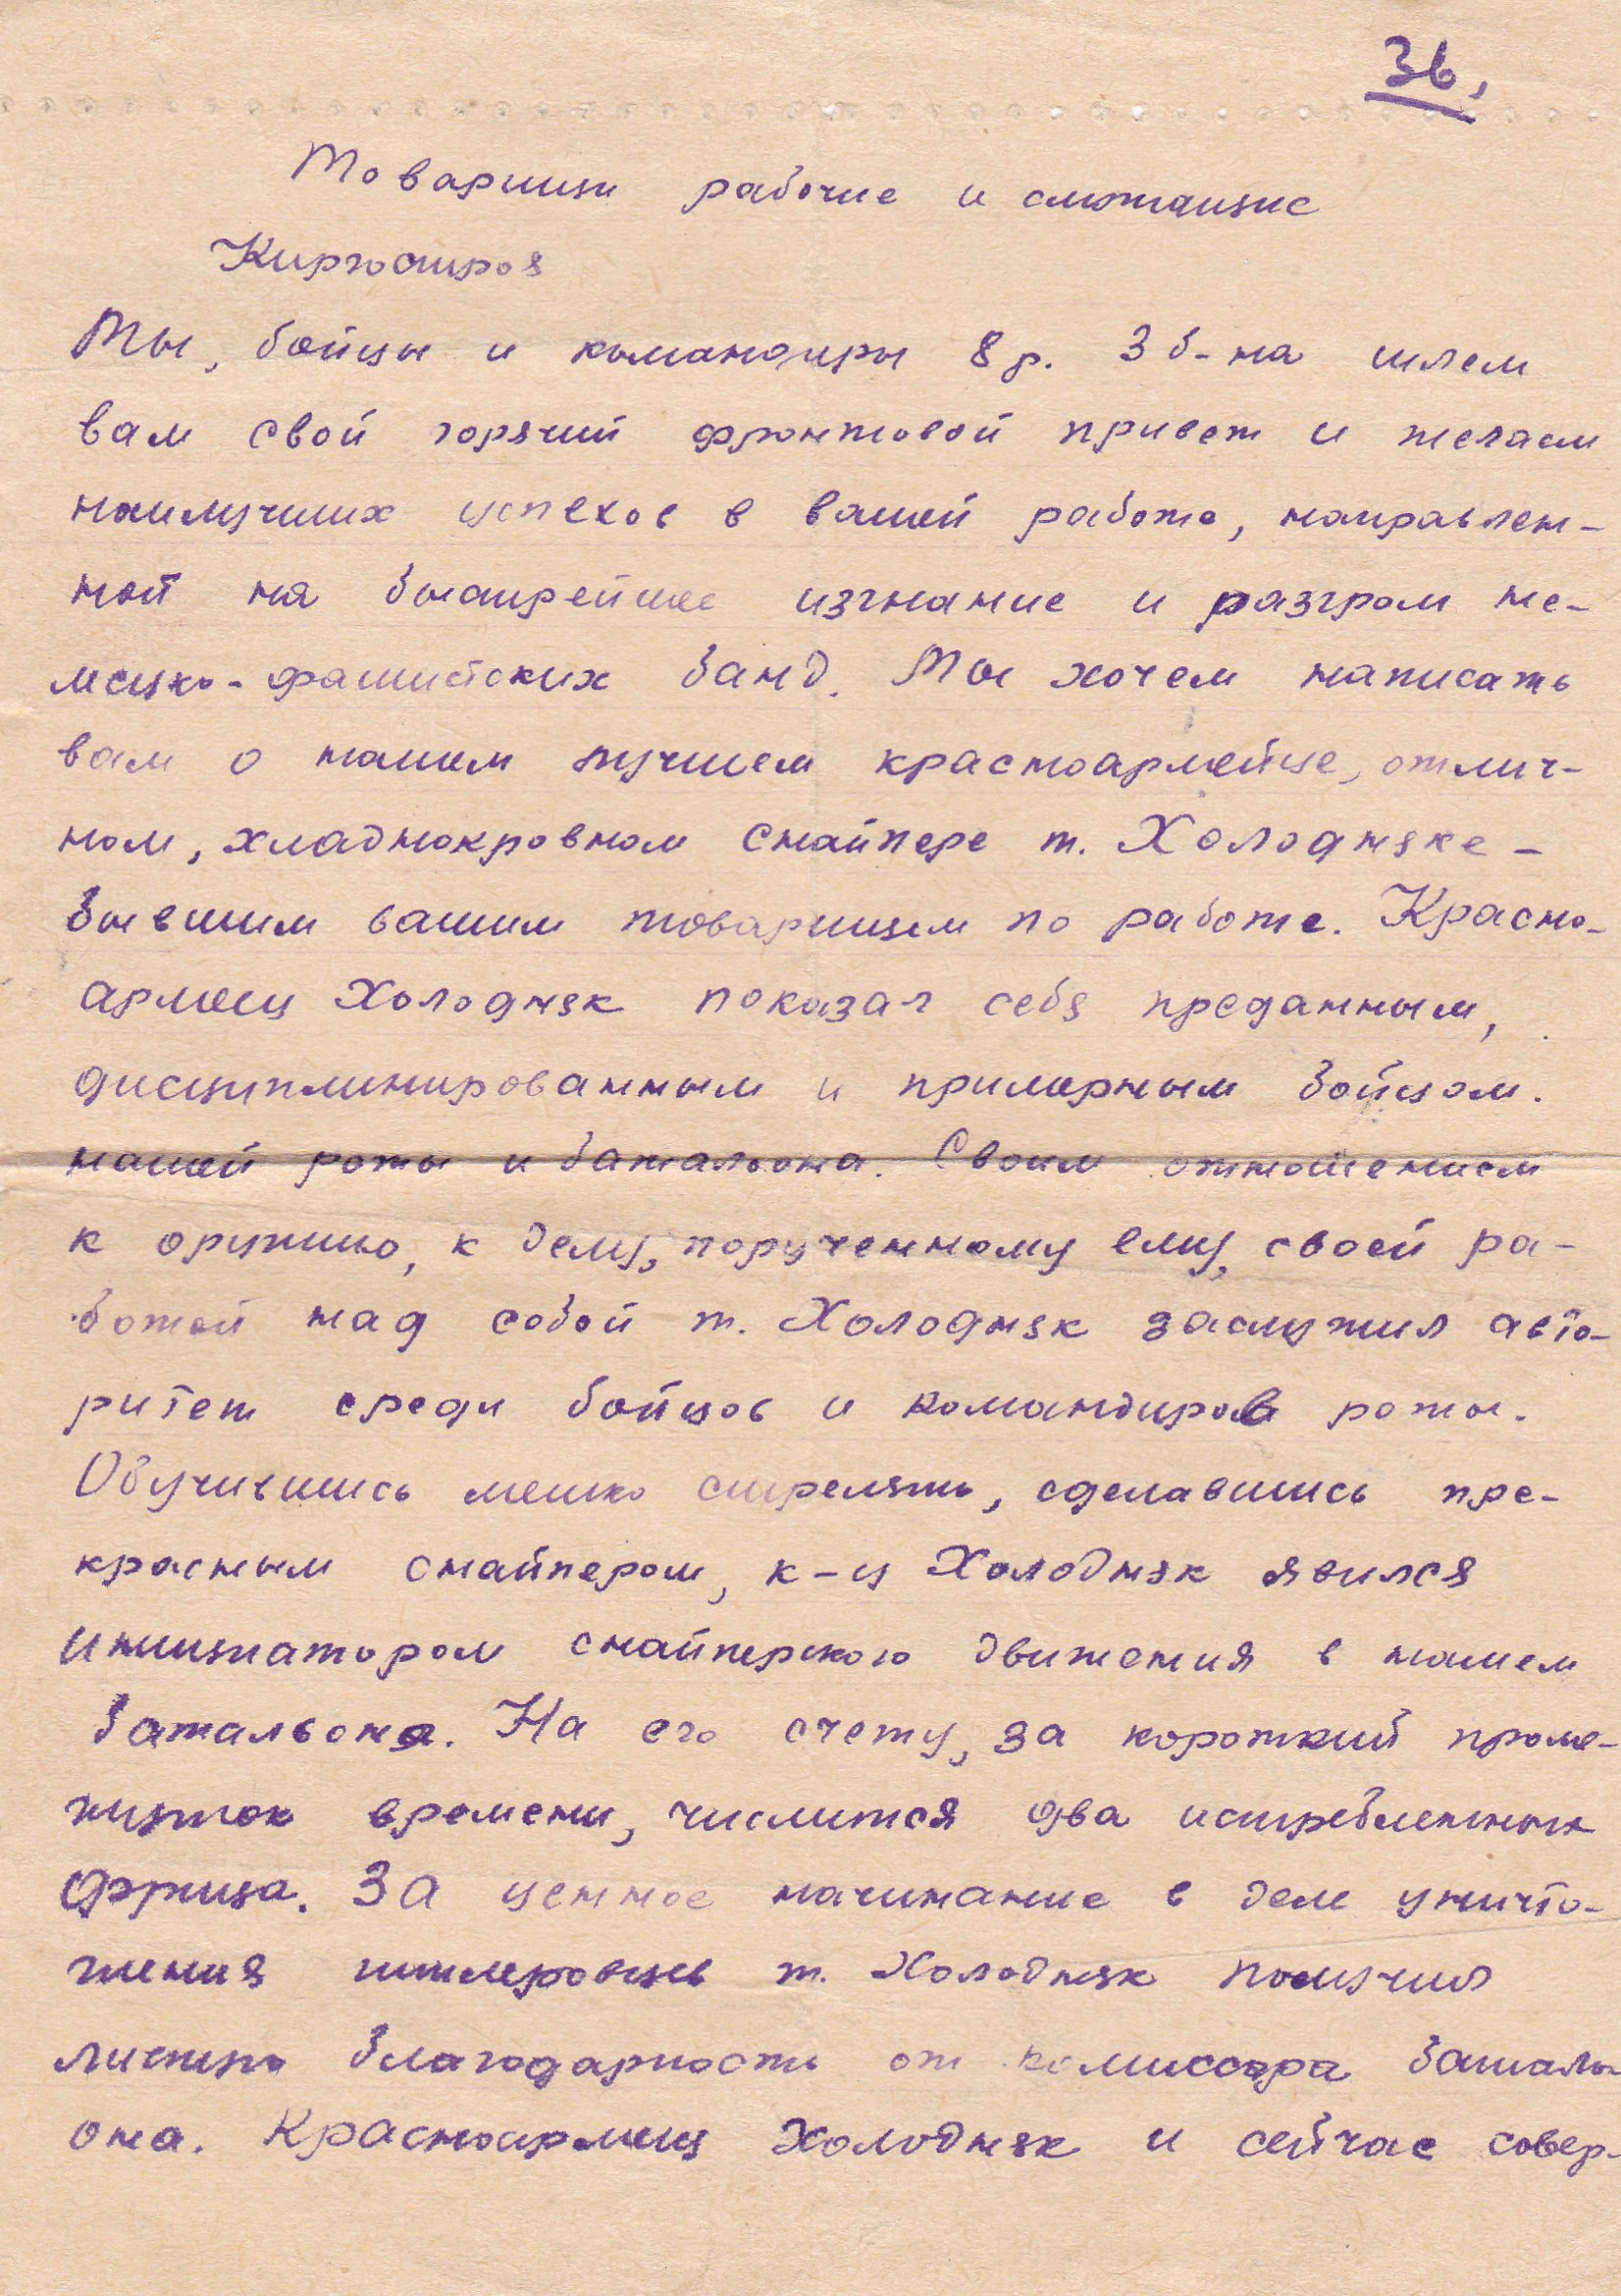 36,
Товарищи рабочие и служащие
Киргостроя
Мы, бойцы и командиры 8 р. 3 б-на шлем
вам свой горячий фронтовой привет и желаем
наилучших успехов в вашей работе, направлен-
ной на быстрейшее изгнание и разгром не-
мецко-фашистских банд. Мы хочем написать
вам о нашем лучшем красноармейце, отлич-
ном, хладнокровном снайпере т. Холодняке -
бывшим вашим товарищем по работе. Красно-
армеец Холодняк показал себя преданным,
дисциплинированным и примерным бойцом.
нашей роты и батальона. Своим отношением
к оружию, к делу, порученному ему, своей ра-
ботой над собой т. Холодняк заслужил авто-
ритет среди бойцов и командиров роты.
Обучившись метко стрелять, сделавшись пре-
красным снайпером, к-ц Холодняк явился
инициатором снайперского движения в нашем
батальоне. На его счету, за короткий проме-
жуток времени, числится два истребленных
фрица. За ценное начинание в деле уничто-
жения гитлеровцев т. Холодняк получил
личную благодарность от комиссара баталь-
она. Красноармеец Холодняк и сейчас совер-